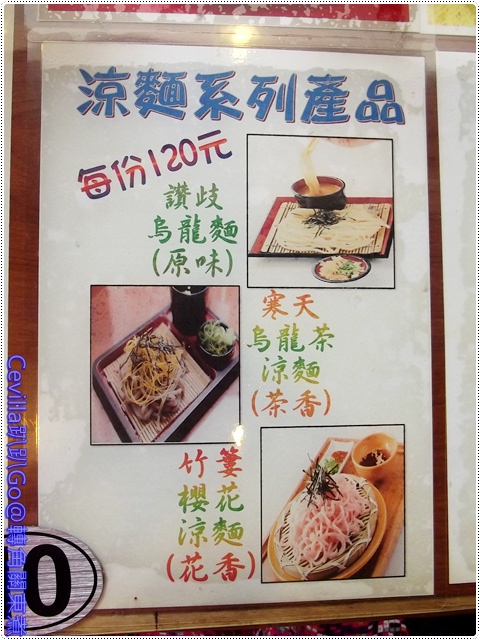 涼麵系列產品
每份120元
讚歧
烏龍麵
(原味)
寒天
烏龍茶
涼麵
(茶香)
竹簍
櫻花
涼麵
(花香)
Cevilla趴趴Go@轉角關東煮
0